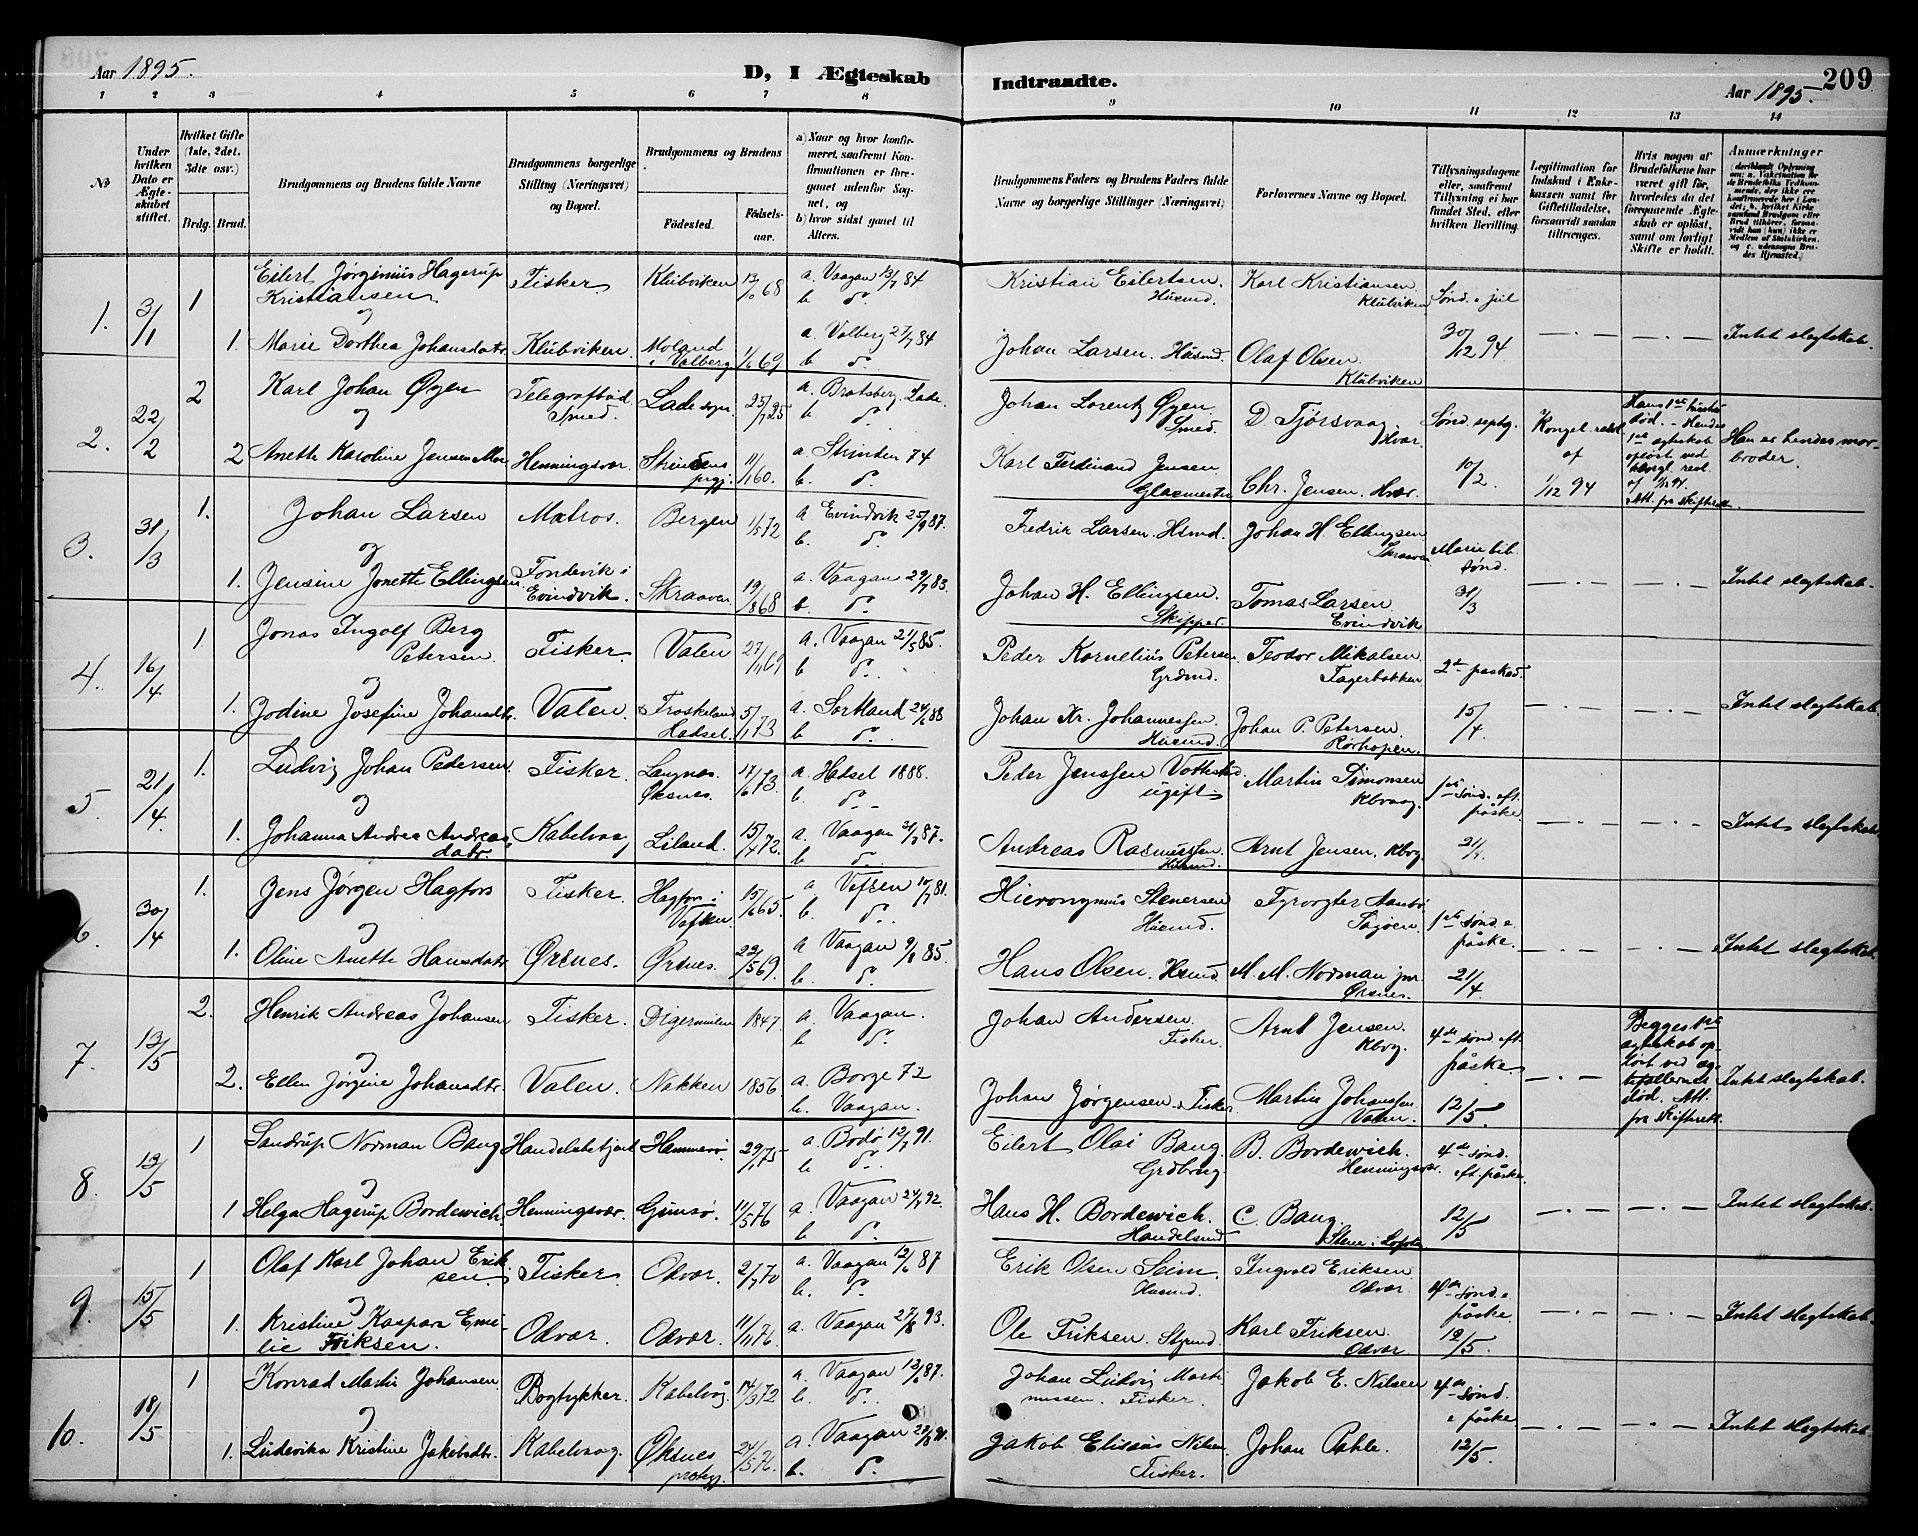 209
Aar 1895.
D, I Ægteskab Indtraadte.
Aar 1895.
1 2 3 4 5 6 7 8 9 10 11 12 13 14
No
Under hvilken Dato er Ægteskabet stiftet.
Hvilket Gifte (1ste, 2det, 3die osv.)
Brdg. Brud.
Brudgommens og Brudens fulde Navne
Brudgommens borgerlige Stilling (Næringsvei) og Bopæl.
Brudgommens og Brudens
Fødested. Fødselsaar.
a) Naar og hvor konfirmeret, saafremt Konfirmationen er foregaaet udenfor Sognet, og
b) hvor sidst gaaet til Alters.
Brudgommens Faders og Brudens Faders fulde Navne og borgerlige Stillinger (Næringsvei)
Forlovernes Navne og Bopæl.
Tillysningsdagene eller, saafremt Tillysning ei har fundet Sted, efter hvilken Bevilling.
Legitimation for Indskud i Enkekassen samt for Giftetilladelse, forsaavidt saadan tiltrænges.
Hvis nogen af Brudefolkene har været gift før, hvorledes da det foregaaende Ægteskab er opløst, samt om lovligt Skifte er holdt.
Anmærkninger
1. 3/1 1 Eilert Jørginius Hagerup Kristiansen Fisker Klubviken 68 a. Vaagan 84 b. d. Kristian Eilertsen Husmd. Karl Kristiansen Klubviken Sønd. e. jul
og
1. Marie Dorthea Johansdatr. Klubviken. Moland i Valberg 69 a. Valberg 84 b. d. Johan Larsen. Husmd. Olaf Olsen Klubviken 30/12 94 — . — — . — Intet slegtskab.
2. 22/2 2 Karl Johan Øyen Telegrafbud Smed. Lade sogn 25 a. Bratsberg, Lade. b. d. Johan Lorentz Øyen Smed. D. Tjørsvaag Hvær. Sønd. septg. Kongel. resol. af Hans 1ste hustru død. - Hendes 1ste egteskab opløst ved
og
2 Anette Karoline Jensen Moe Henningsvær. Strinden prgj. 11/1 60. a. Strinden 74 b. d. Karl Ferdinand Jensen Glasmester Chr. Jensen. Hvær. 10/2 1/12 94 Att. fra skifteret. Han er hendes morbroder.
3. 31/3 1. Johan Larsen Matros. Bergen 72 a. Evindvik 25/9 87. b. d. Fredrik Larsen. Hsmd. Johan H. Ellingsen Skraaven Marie beb. sønd.
og
1. Jensine Jonette Ellingsen Fondevik i Evindvik. Skraaven 19/8 68 a. Vaagan 83. b. d. Johan H. Ellingsen. Skipper Tomas Larsen Evindvik 31/3 — . — — . — Intet slegtskab.
4. 16/4 1 Jonas Ingolf Berg Petersen. Fisker. Valen 69 a. Vaagan 85. b. d. Peder Kornelius Petersen Grdmd. Teodor Mikalsen Fagerbakken 2den paaskd.
og
1. Jodine Josefine Johansdtr. Valen. Froskeland Hadsel. 5/1 73 a. Sortland 88 b. d. Johan Kr. Johannessen. Husmd. Johan P. Petersen. Rørhopen. 15/4. — . — — . — Intet slegtskab.
5. 21/4. 1. Ludvig Johan Pedersen. Fisker. Langnes. Øksnes. 17/6 73. a. Hadsel 1888. b. d. Peder Jenssen ugift Martin Simonsen Kbvaag. 1ste sønd. eft. påske.
og
1. Johanna Andrea Andreasdatr. Kabelvaag Liland. 15/4 72. a. Vaagan 87. b. d. Andreas Rasmussen. Husmd. Arnt Jensen. Kbvg. 21/4. — . — — . — Intet slegtskab.
6. 30/4 1. Jens Jørgen Hagfors Fisker Hagfors i Vefsen. 15/6 65. a. Vefsen 81. b. d. Hieronymus Stenersen Husmd. Fyrvogter 1ste sønd. e. påske.
og
1. Oline Anette Hansdatr. Ørsnes. Ørsnes. 22/5 69. a. Vaagan 85. b. d. Hans Olsen. Husmd. M. M. Norman jnr. Ørsnes. 21/4 — . — — . — Intet slegtskab.
7. 13/5 2. Henrik Andreas Johansen Fisker. Digermulen 1847. a. Vaagan. b. d. Johan Andersen. Fisker. Arnt Jensen. Kbvg. 4de sønd. eft. påske. Begges 1ste egteskab opløst ved egtefællernes død. Att. fra Skifterett.
og
2. Ellen Jørgine Johansdtr. Valen. Nakken 1856. a. Borge 72 b. Vaagan. Johan Jørgensen. Fisker Martin Johansen Valen. 12/5. — . — Intet slegtskab.
8. 13/5 1 Sandrup Norman Bang Handelsbetjent Hammerø. 29/1 75 a. Bodø 12/7 91. b. d. Eilert Olai Bang. Grdbrug. B. Bordewich. Henningsvær. 4de sønd. eft. påske.
og
1 Helga Hagerup Bordewich. Henningsvær. Gimsø. 11/5 76 a. Vaagan 92. b. d. Hans H. Bordewich. Handelsmd. C. Bang. Stene i Lofoten 12/5 — . — — . — Intet slegtskab.
9. 15/5 1 Olaf Karl Johan Eriksen Fisker Odvær. 2/7 70 a. Vaagan 12/6 87 b. d. Erik Olsen Seim. Husmd. Ingvald Eriksen Odvær 4de sønd. e påske
og
1. Kristine Kaspara Emilie Friksen. Odvær. Odvær. 11/11 76. a. Vaagan 27/8 93. Ole Friksen. Karl Friksen. Odvær 12/5. — . — — . — Intet slegtskab.
10. 18/5 1 Konrad Martin Johansen. Bogtrykker. Kabelvåg 14/3 72 a. Vaagan 12/6 87. b. d. Johan Ludvig Martinussen. Fisker. Jakob E. Nilsen 4de sønd. e påske.
og
1. Ludevika Kristine Jakobsdtr. Kabelvaag. Øksnes prstgj. 24/5 a. Vaagan b. d. Jakob Elisæus Nilsen Fisker. Johan Pahle. 12/5. — . — — . — Intet slegtskab.